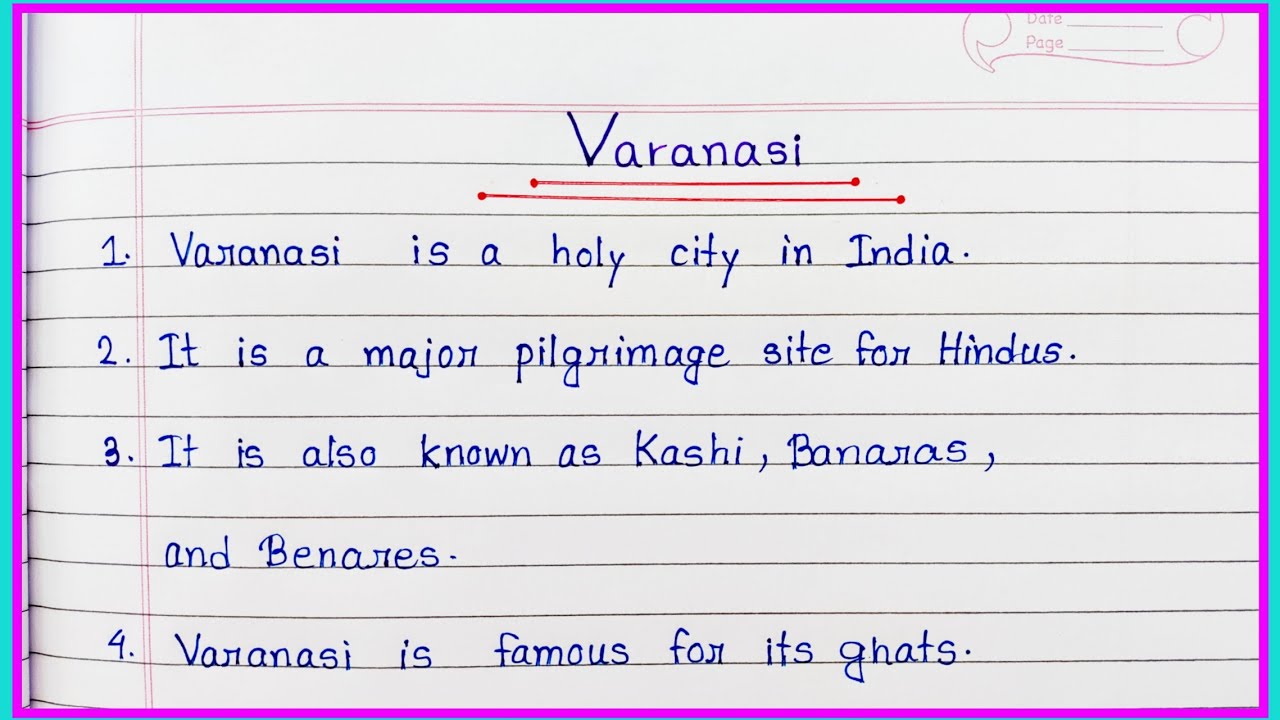 Date
Page
Varanasi
1. Varanasi is a holy city in India.
2. It is a major pilgrimage site for Hindus.
3. It is also known as Kashi, Banaras,
and Benares.
4. Varanasi is famous for its ghats.